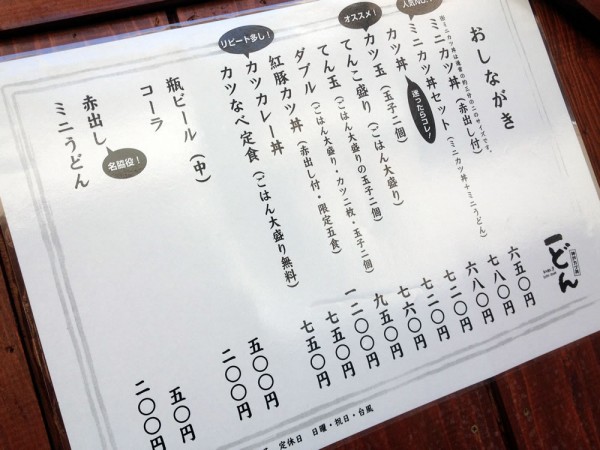 おしながき
ミニカツ丼は普通の約三分の二のサイズです。
ミニカツ丼(赤出し付) 六五〇円
人気No.
ミニカツ丼セット(ミニカツ丼+ミニうどん) 七八〇円
迷ったらコレ!
カツ丼 六八〇円
オススメ!
カツ玉(玉子二個) 七二〇円
てんこ盛り(ごはん大盛り) 七二〇円
てん玉(ごはん大盛りの玉子二個) 七六〇円
ダブル(ごはん大盛り・カツ二枚・玉子二個) 九五〇円
紅豚カツ丼(赤出し付・限定五食) 一二〇〇円
リピート多し!
カツカレー丼 七五〇円
カツなべ定食(ごはん大盛り無料) 七五〇円
瓶ビール(中) 五〇〇円
コーラ 二〇〇円
赤出し 五〇円
名脇役!
ミニうどん 二〇〇円
どん
定休日 日曜・祝日・台風